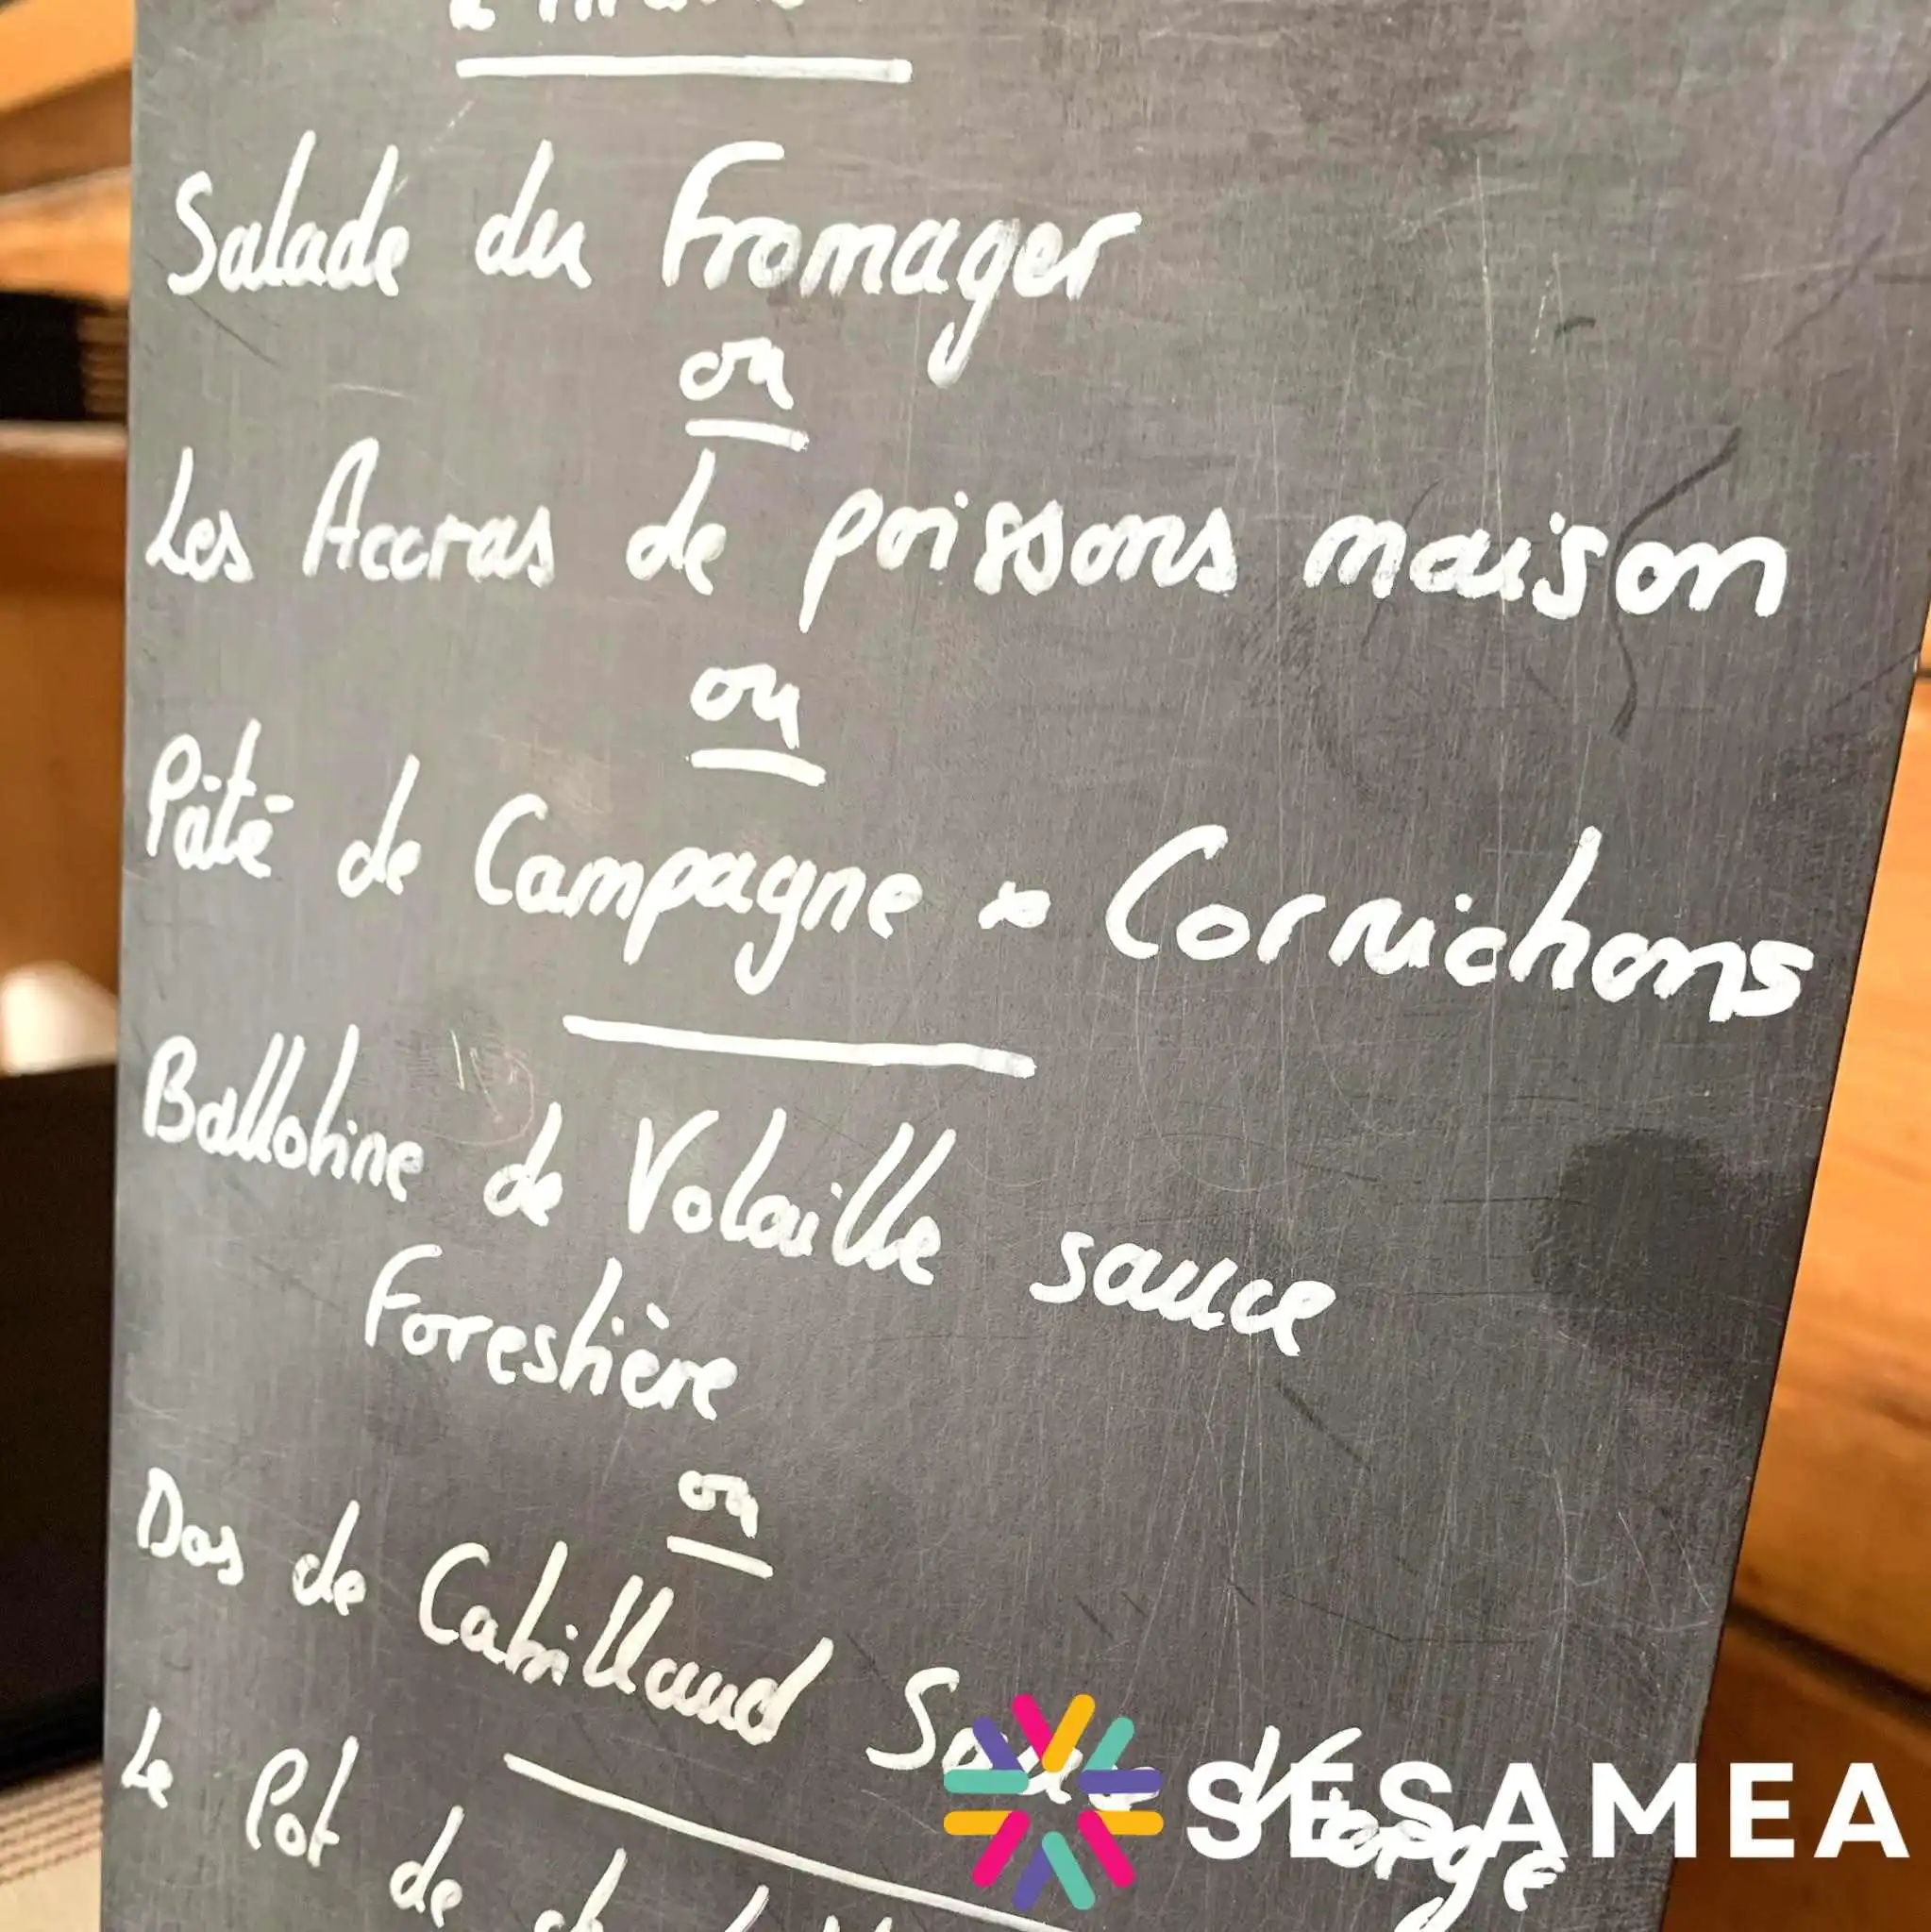 Salade du Fromager
ou
Les Accras de poissons maison
ou
Pâté de Campagne ~ Cornichons
Ballotine de Volaille sauce
Forestière
ou
Dos de Cabillaud Sauce Vierge
SESAMEA
Le Pot de